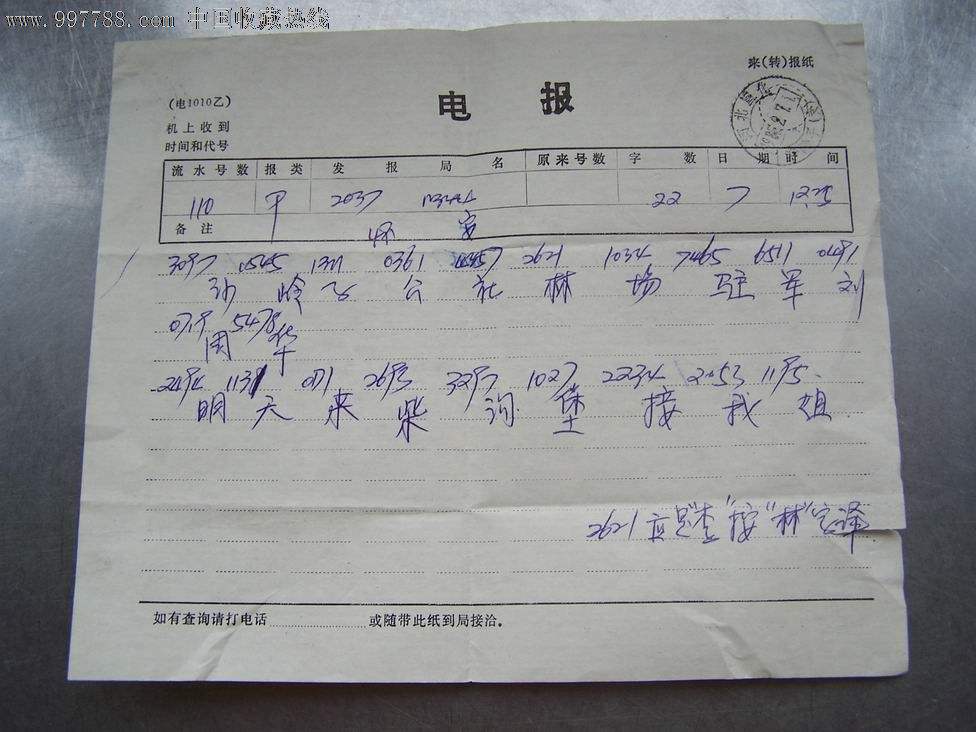 www.997788.com 中国收藏热线
来(转)报纸
电 报
(电1010乙)
机上收到
时间和代号
流水号数 报类 发报局名 原来号数 字数 日期 时间
110 甲 2037 怀安 22 7 1225
备注
0545 1311 0361 2621 1034 7465 6511 0491
沙岭子公社林场驻军刘
0719 5478
国华
2494 1131 2693 3297 1027 2234 2053 1195
明天来柴沟堡接我姐
2621应是"查"按"林"字译
如有查询请打电话 或随带此纸到局接洽。